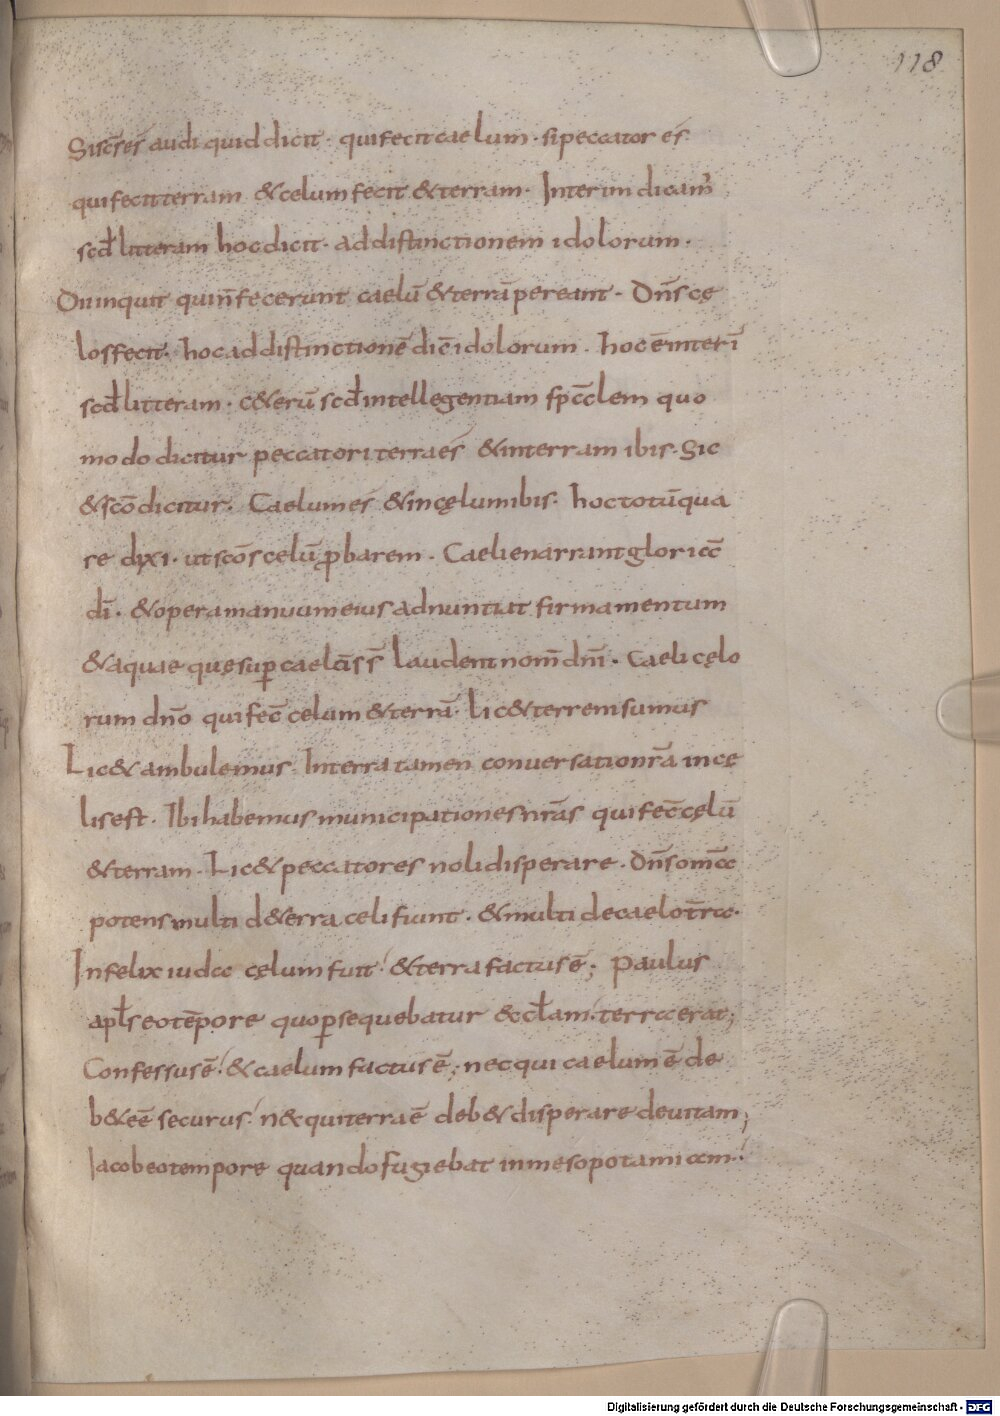 118
Siscs̄ es audi quid dicit · qui fecit caelum · si peccator es
qui fecit terram &celum fecit &terram · Interim dicam'
scd̄ litteram hoc dicit · ad distinctionem idolorum ·
Dii inquit qui n̄ fecerunt caelū &terrā pereant · Dn̄s cę
los fecit · hoc ad distinctionē dic̄ idolorum · hoc ē interī
scd̄ litteram · c&erū scd̄ intellegentiam sp̄cc̄lem quo
modo dicitur peccatori terra es &in terram ibis · Sic
&scō dicitur · Caelum es &in cęlum ibis · hoc totū qua
re dixi · ut scōs celū ꝓbarem · Caeli enarrant gloricc̄
dī · &opera manuum eius adnuntiat firmamentum
&aquae quę sup̄ caelc̄is s̄ laudent nom̄ dnī · Caeli cęlo
rum dn̄o qui fec̄ celum &terrā · Lic& terreni sumus
Lic& ambulemus · In terra tamen conuersatio nr̄a in cę
lis est · Ibi habemus municipationes nr̄as qui fec̄ cęlū
&terram · Lic& peccatores noli disperare · Dn̄s om̄cc
potens multi d& erra celi fiunt · &multi de caelo tr̄rcc ·
Infelix iudcc cęlum fuit · &terra factus ē; Paulus
apl̄s eo tēpore quo ꝑsequebatur &ccl̄am · terrcc erat;
Confessus ē · &caelum factus ē; nec qui caelum ē de
b& eē securus · n& qui terra ē deb& disperare de uitam;
Iacob eo tempore quando fugiebat in mesopotamiccm ·
Digitalisierung gefördert durch die Deutsche Forschungsgemeinschaft - DFG